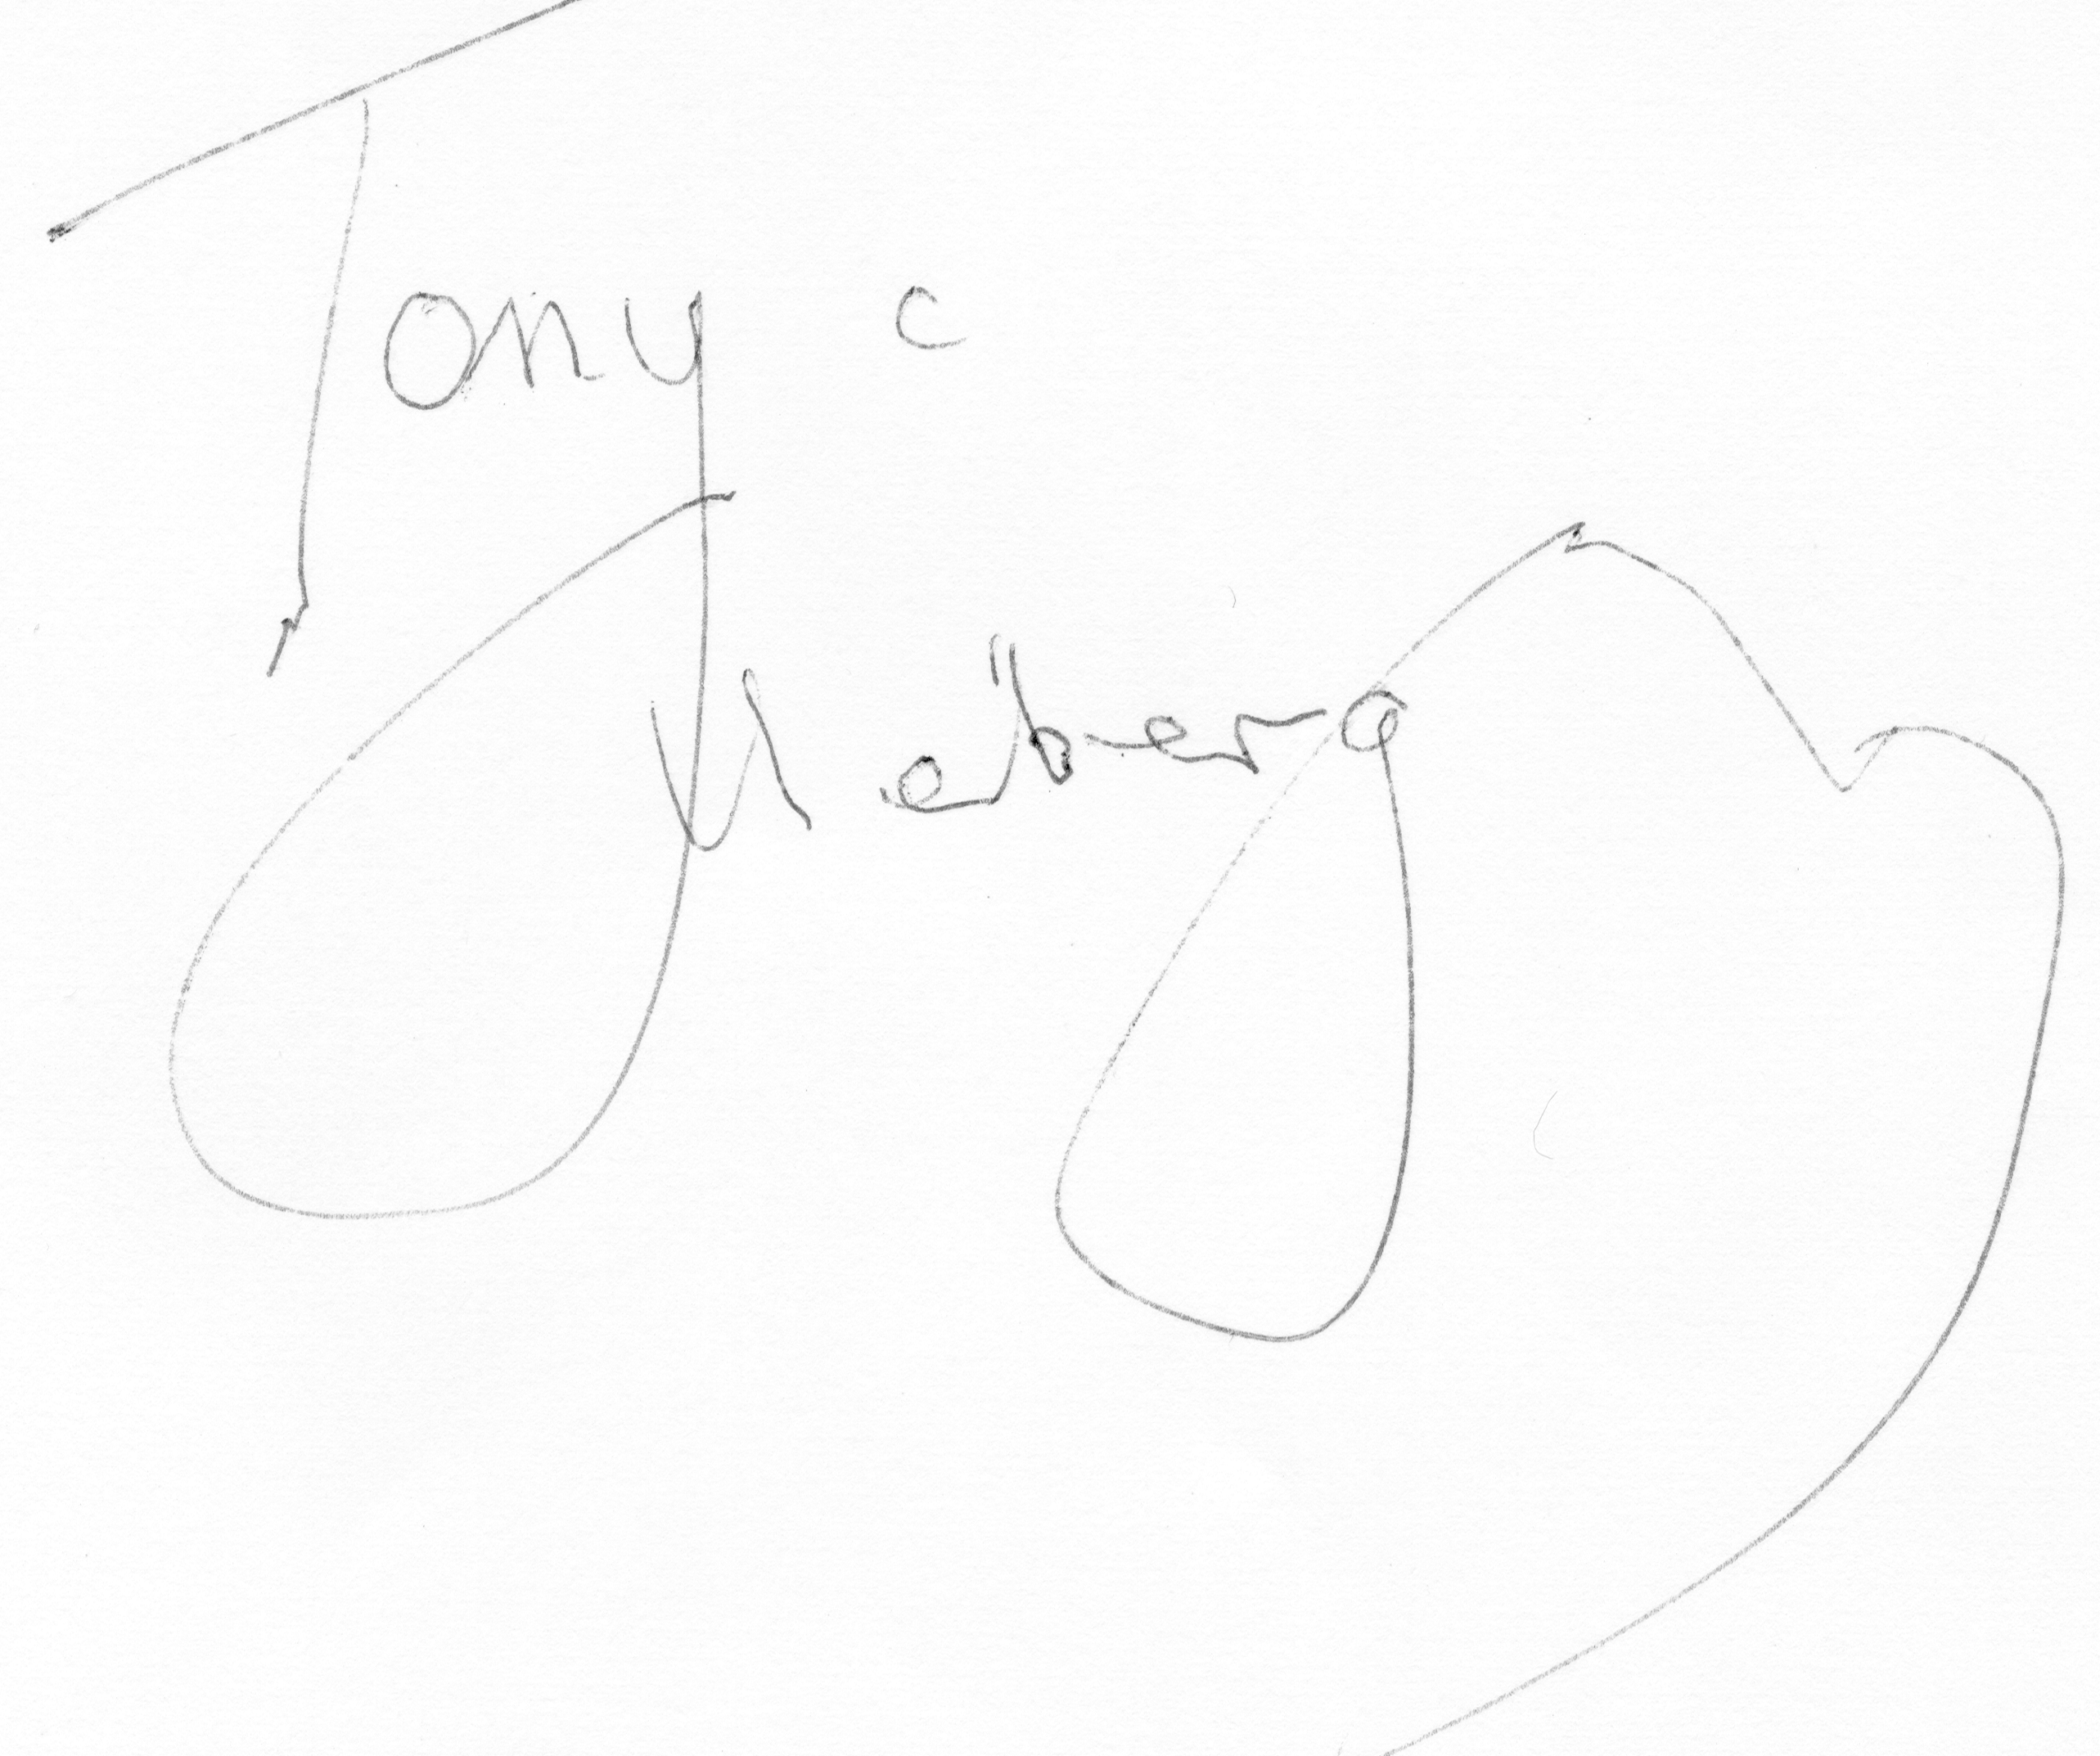 Tony c
Ueberg